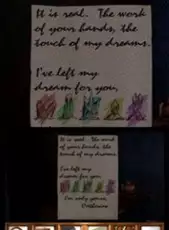 It is real. The work
of your hands, the
touch of my dreams.
I've left my
dream for you,
It is real. The work
of your hands, the
touch of my dreams.
I've left my
dream for you
I'm only yours,
Catherine